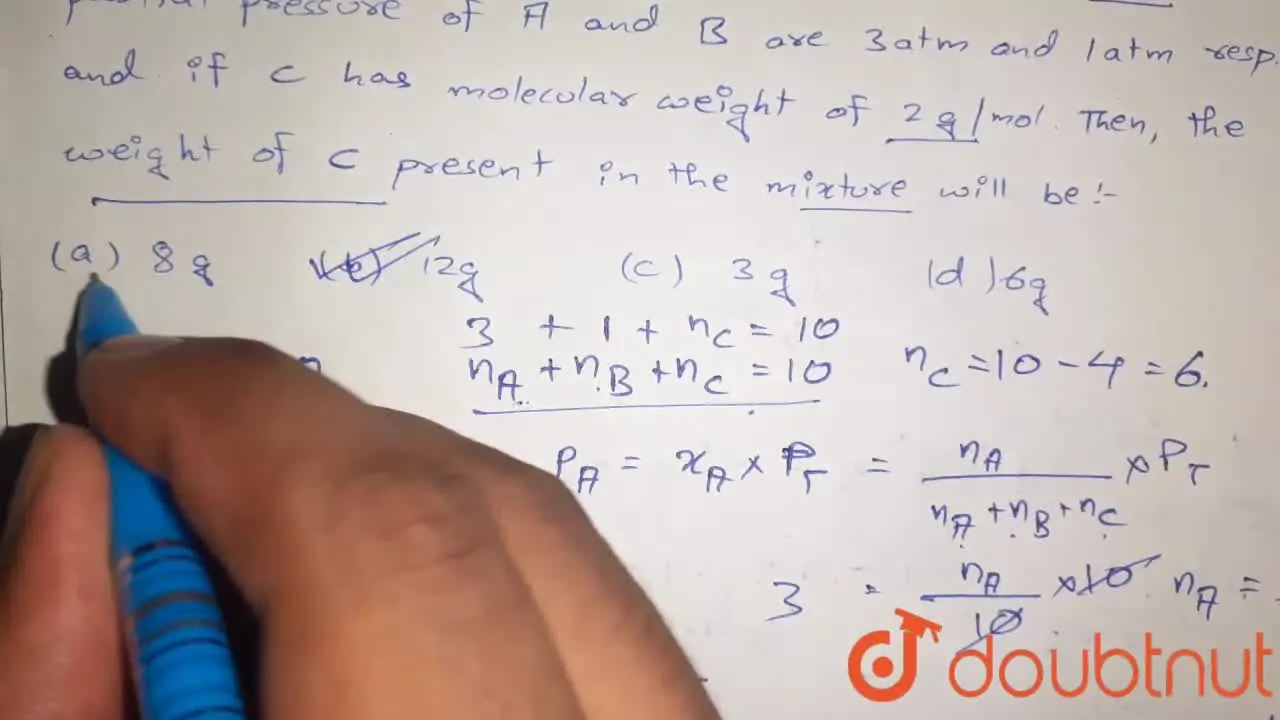 pressure of A and B are 3 atm and 1 atm resp.
and if C has molecular weight of 2 g/mol. Then, the
weight of C present in the mixture will be :-
(a) 8 g (b) 12g (c) 3 g (d) 6g
3 + 1 + nC = 10
nA + nB + nC = 10 nC = 10 - 4 = 6.
PA = xA × PT = nA / nA + nB + nC × PT
3 = nA / 10 × 10 nA =
doubtnut